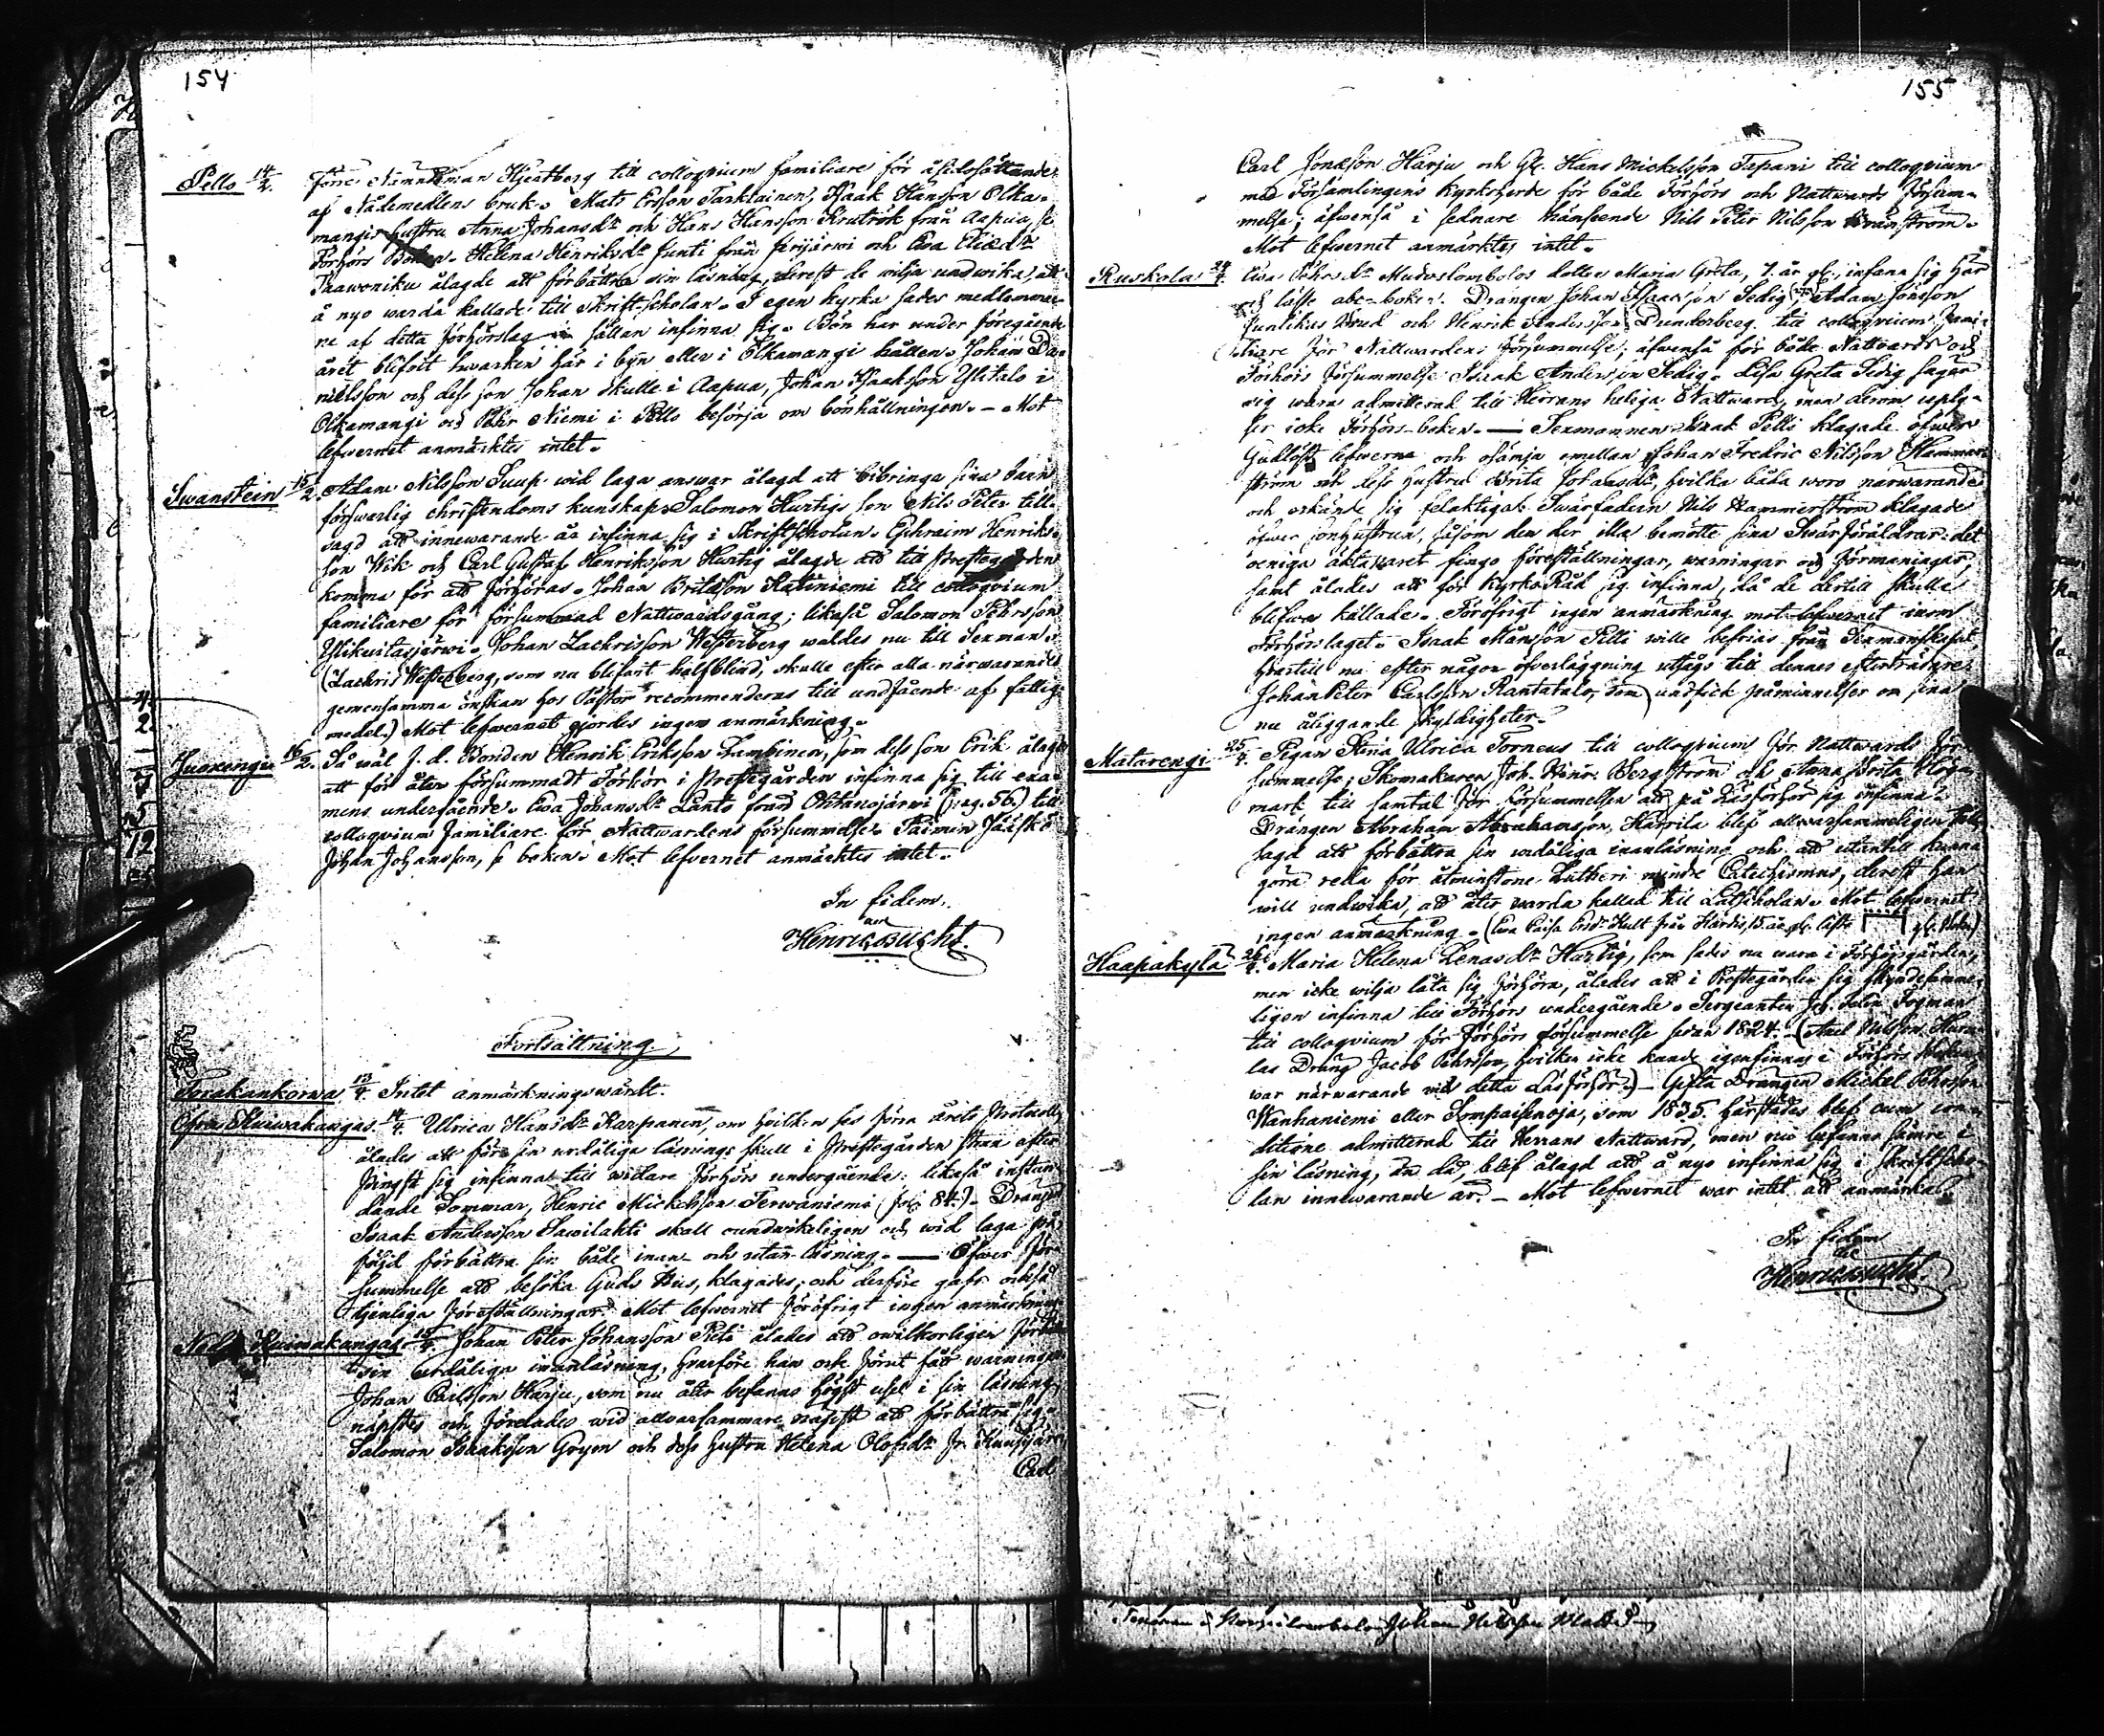 154
Pello 14/2. Förre Nämndeman Hjertberg till colloqvium familiare för åsidosättande
af Nådemedlens bruk. Mats Ersson Tarkiainen, Isaak Hansson Olka-
mangis hustru Anna Johansdr och Hans Hansson Krutrök från Aapua, se
Förhörs Boken. Helena Henriksdr Junti från och Ewa Eliædr
Paawoniku ålagde att förbättra sin läsning, derest de wilja undwika, att
å nyo warda kallade till Skrift-scholan. I egen kyrka sades medlemmar-
ne af detta Förhörslag sällan infinna sig. Bön har under föregående
året blifvit hwarken här i byn eller i Olkamangi hållen. Johan Da-
nielsson och dess son Johan skulle i Aapua, Johan Isaaksson Ylitalo i
Olkamangi och Pehr Niemi i Pello besörja om bönhållningen. - Mot
lefwernet anmärktes intet.
Swanstein 15/2. Adam Nilsson Suup wid laga answar ålagd att bibringa sina barn
förswarlig christendoms kunskap. Salomon Hurtigs son Nils Peter till-
sagd att innewarande år infinna sig i Skriftscholan. Ephraim Henriks-
son Wik och Carl Gustaf Henriksson Hurtig ålagde att till Prestegården
komma för att förhöras. Johan Kativiemi till colloqvium
familiare för försummad Nattwardsgång; likaså Salomon Pehrsson
Johan Zachrisson Westerberg waldes nu till Sexman.
(Zachris Westerberg, som nu blifwit halfblind, skulle efter alla närwarandes
gemensamma önskan hos Pastor recommenderas till undfående af fattig-
medel.) Mot lefwernet gjordes ingen anmärkning.
Juoxengi 16/2. Så wäl f. d. Bonden Henrik Eriksson Lambinen, som dess son Erik ålagde
att för åter försummadt Förhör i Prestegården infinna sig till exa-
mens undergående. Ewa Johansdr Lanto från Ohtanajärwi (pag. 56.) till
colloqvium familiare för Nattwardens försummelse. Jääskö
Johan Johansson, se boken. Mot lefwernet anmärktes intet.
In fidem
Henric Bucht.
Fortsättning,
Torakankorwa 13/4. Intet anmärkningswärdt.
Öfre Kuiwakangas 14/4. Ulrica Hansdr Karpanen, om hvilken ses förra årets Protocoll,
ålades att för sin urdåliga läsnings skull i Prestegården strax efter
Pingst sig infinna till widare förhörs undergående: likaså instun-
dande Sommar, Henric Mickelsson Terwaniemi (fol. 84.). Drängen
Isaak Andersson Sawilahti skall oundwikeligen och wid laga på-
följd förbättra sin både inan- och utan-läsning. — Öfwer för-
summelse att besöka Guds Hus, klagades; och derföre gafs också
tjenliga föreställningar. Mot lefwernet föröfrigt ingen anmärkning.
Nedre Kuiwakangas 15/4. Johan Peter Johansson Pieti ålades att owilkorligen förbättra
sin urdåliga inanläsning, hwarföre han ock förut fått warningar.
Johan Carlsson Harju, som nu åter befanns högst usel i sin läsning,
näpstes och förelades wid allwarsammare näpst att förbättra sig.
Salomon Isaaksson och dess hustru Helena Olofsdr
Carl
155
Carl Jonæson Harju och Gl. Hans Mickelsson Tapani till colloqvium
med Församlingens Kyrkoherde för både Förhörs och Nattwards försum-
melse; äfwenså i sednare hänseende Nils Peter Nilsson Granström.
Mot lefwernet anmärktes intet.
Ruskola 24/4. Ewa Pehrsdr Mudoslombolos dotter Maria Greta, 7. år gl., infann sig här
och läste abc-boken. Drängen Johan Isaacsson Sedig, Adam Jönsson
Juntikus Brud och Henrik Andersson Dunderberg till colloqvium fami-
liare för Nattwardens försummelse; äfwenså för både Nattwards och
Förhörs försummelse Isaak Andersson Sedig. Lisa Greta Sedig säger
sig wara admitterad till Herrans heliga Nattward, men derom uply-
ser icke Förhörs-boken. — Sexmannen Isaak Pelli klagade öfwer
Gudlöst lefwerne och osämja emellan Johan Fredric Nilsson Hammar-
ström och dess hustru Brita Johansdr, hvilka båda woro närwarande
och erkände sig felaktiga. Swärfadern Nils Hammarström klagade
öfwer sonhustrun, såsom den der illa bemötte sina Swärföräldrar: det
oeniga äkta paret fingo föreställningar, warningar och förmaningar,
samt ålades att för Kyrko Råd sig infinna, då de dertill skulle
blifwa kallade. Föröfrigt ingen anmärkning mot lefwernet inom
Förhörslaget. Isaak Månsson Pelli wille befrias från Sexmanskapet,
hwartill nu efter någon öfverläggning utsågs till dennes efterträdare
Johan Peter Carlsson Rantatalo, som undfick påminnelser om sina
nu åliggande skyldigheter.
Matarengi 25/4. Pigan Stina Ulrica Torneus till colloqvium för Nattwards för-
summelse; Skomakaren Joh. Henr. Bergström och Anna Brita
mark till samtal för försummelsen att på Läsförhör sig infinna.
Drängen Abraham Abrahamsson Harrila blef allwarsammeligen till-
sagd att förbättra sin urdåliga inanläsning och att utantill kunna
göra reda för åtminstone Lutheri mindre Catechismus, derest han
will undwika, att åter warda kallad till Lässkolan. Mot lefwernet
ingen anmärkning. (Ewa Caisa Hult från
Haapakylä 26/4. Maria Helena Zenasdr Hurtig, som sades nu wara i Förhörsgården,
men icke wilja låta sig förhöra, ålades att i Prestegården sig skyndesamme-
ligen infinna till Förhörs undergående. Sergeanten Joh. Fogman
till colloqvium för Förhörs försummelse sedan 1824. (Axel Nilsson
las Dräng Jacob Pehrsson, hvilken icke kunde igenfinnas i Förhörs Boken,
war närwarande wid detta Läsförhör.) - Gifta Drängen Mickel Pehrsson
Wanhaniemi eller Sompaisenoja, som 1835. härstädes blef cum con-
ditione admitterad till Herrans Nattward, men nu befanns sämre i
sin läsning, än då, blef ålagd att å nyo infinna sig i Skriftscho-
lan innewarande år. - Mot lefwernet war intet att anmärka.
In fidem
Henric Bucht.